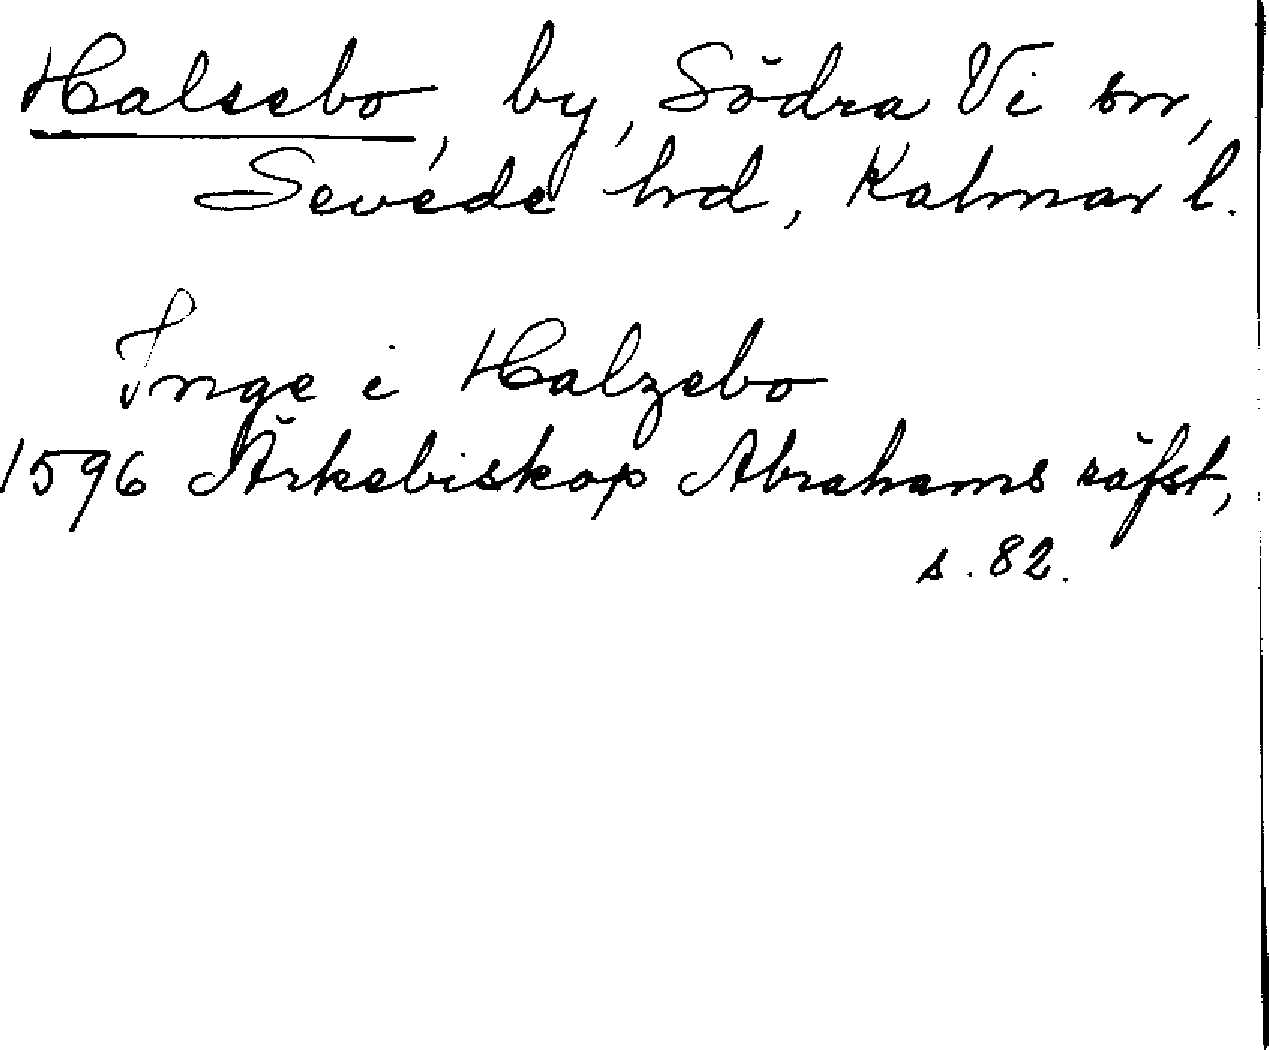 Halsebo, by, Södra Vi sn,
Sevede hrd, Kalmar l.
Inge i Halzebo
1596 Ärkebiskop Abrahams räfst,
s. 82.